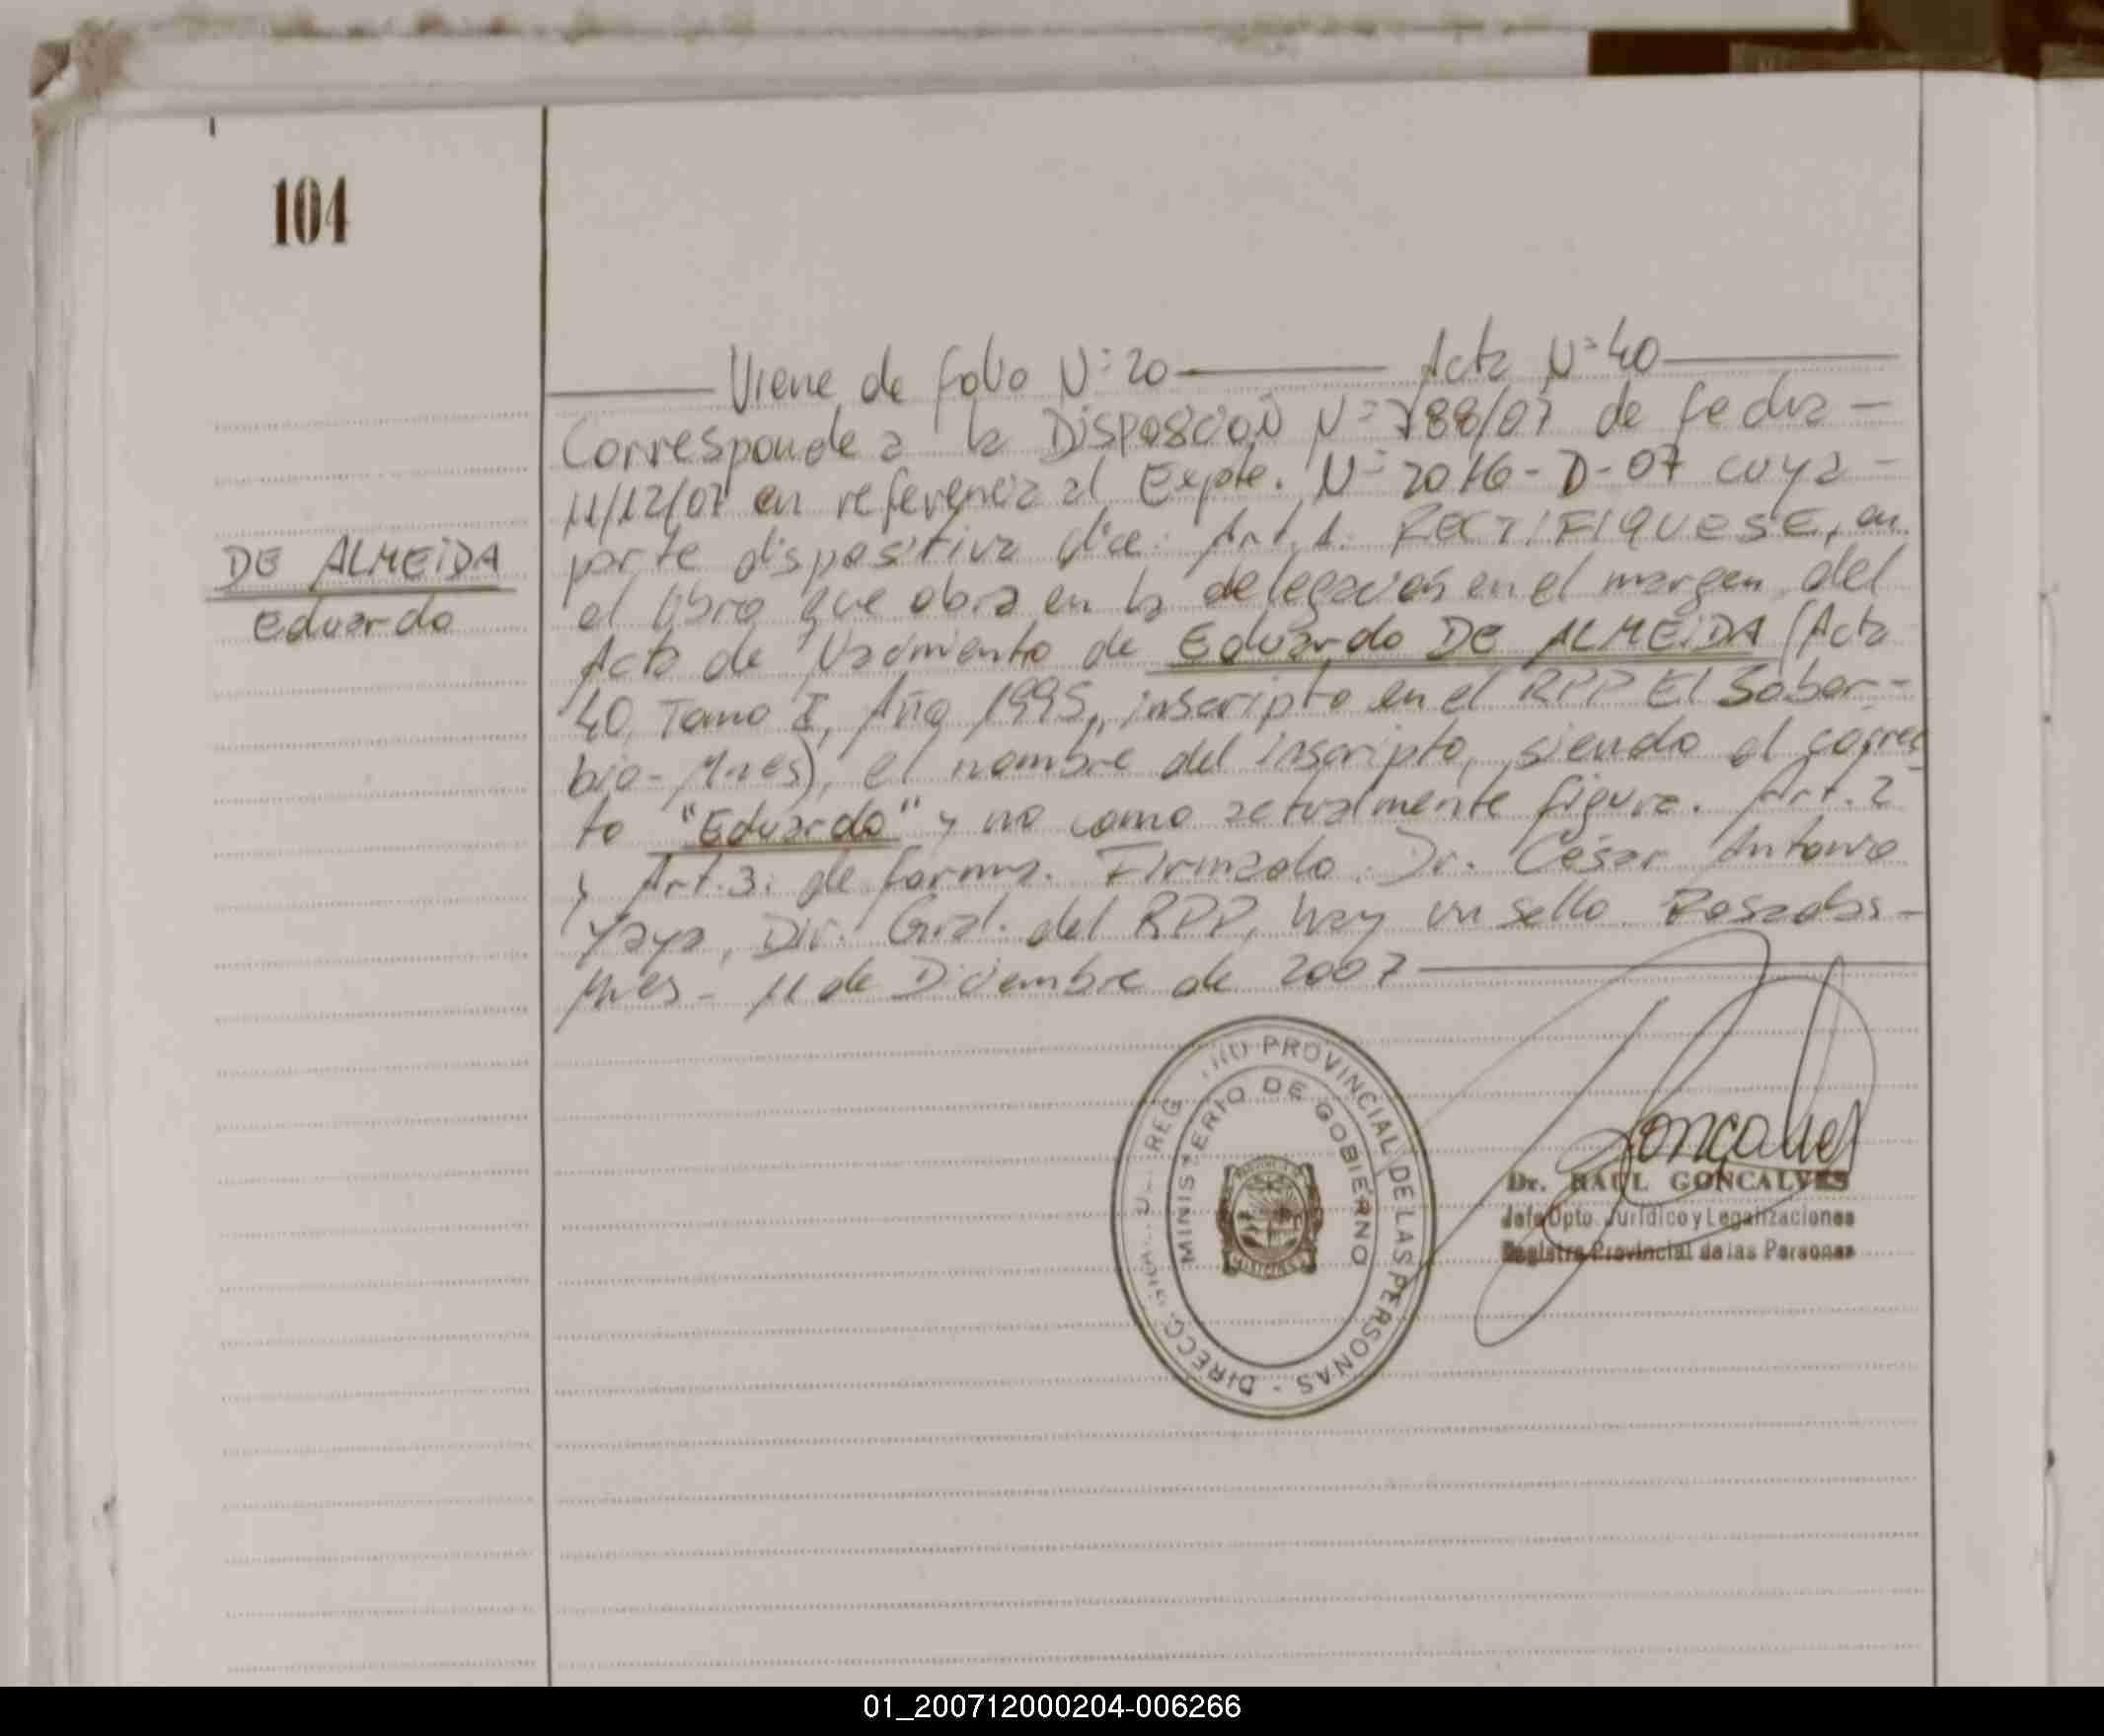 104
Viene de folio N=20 Acta N=40
Corresponde a la Disposición N=788/07 de fecha -
11/12/07 en referencia al Expte. N=2016-D-07 cuya -
parte dispositiva dice: Art.1. RECTIFIQUESE, en
el libro que obra en la delegación en el margen del
Acta de Nacimiento de Eduardo DE ALMEIDA (Acta
40, Tomo I, Año 1995, inscripto en el RPP El Sober-
bio-Mnes), el nombre del inscripto, siendo el correc
to "Eduardo" y no como actualmente figura. Art.2
y Art.3: de forma. Firmado. Dr. César Antonio
Yaya, Dir. Gral. del RPP, hay un sello. Posadas-
Mnes - 11 de Diciembre de 2007
DE ALMEIDA
Eduardo
PROVINCIAL DE LAS PERSONAS - DIRECC.
MINISTERIO DE GOBIERNO
MISIONES
Goncalves
Dr. RAUL GONCALVES
Jefe Dpto. Jurídico y Legalizaciones
Registro Provincial de las Personas
01_200712000204-006266